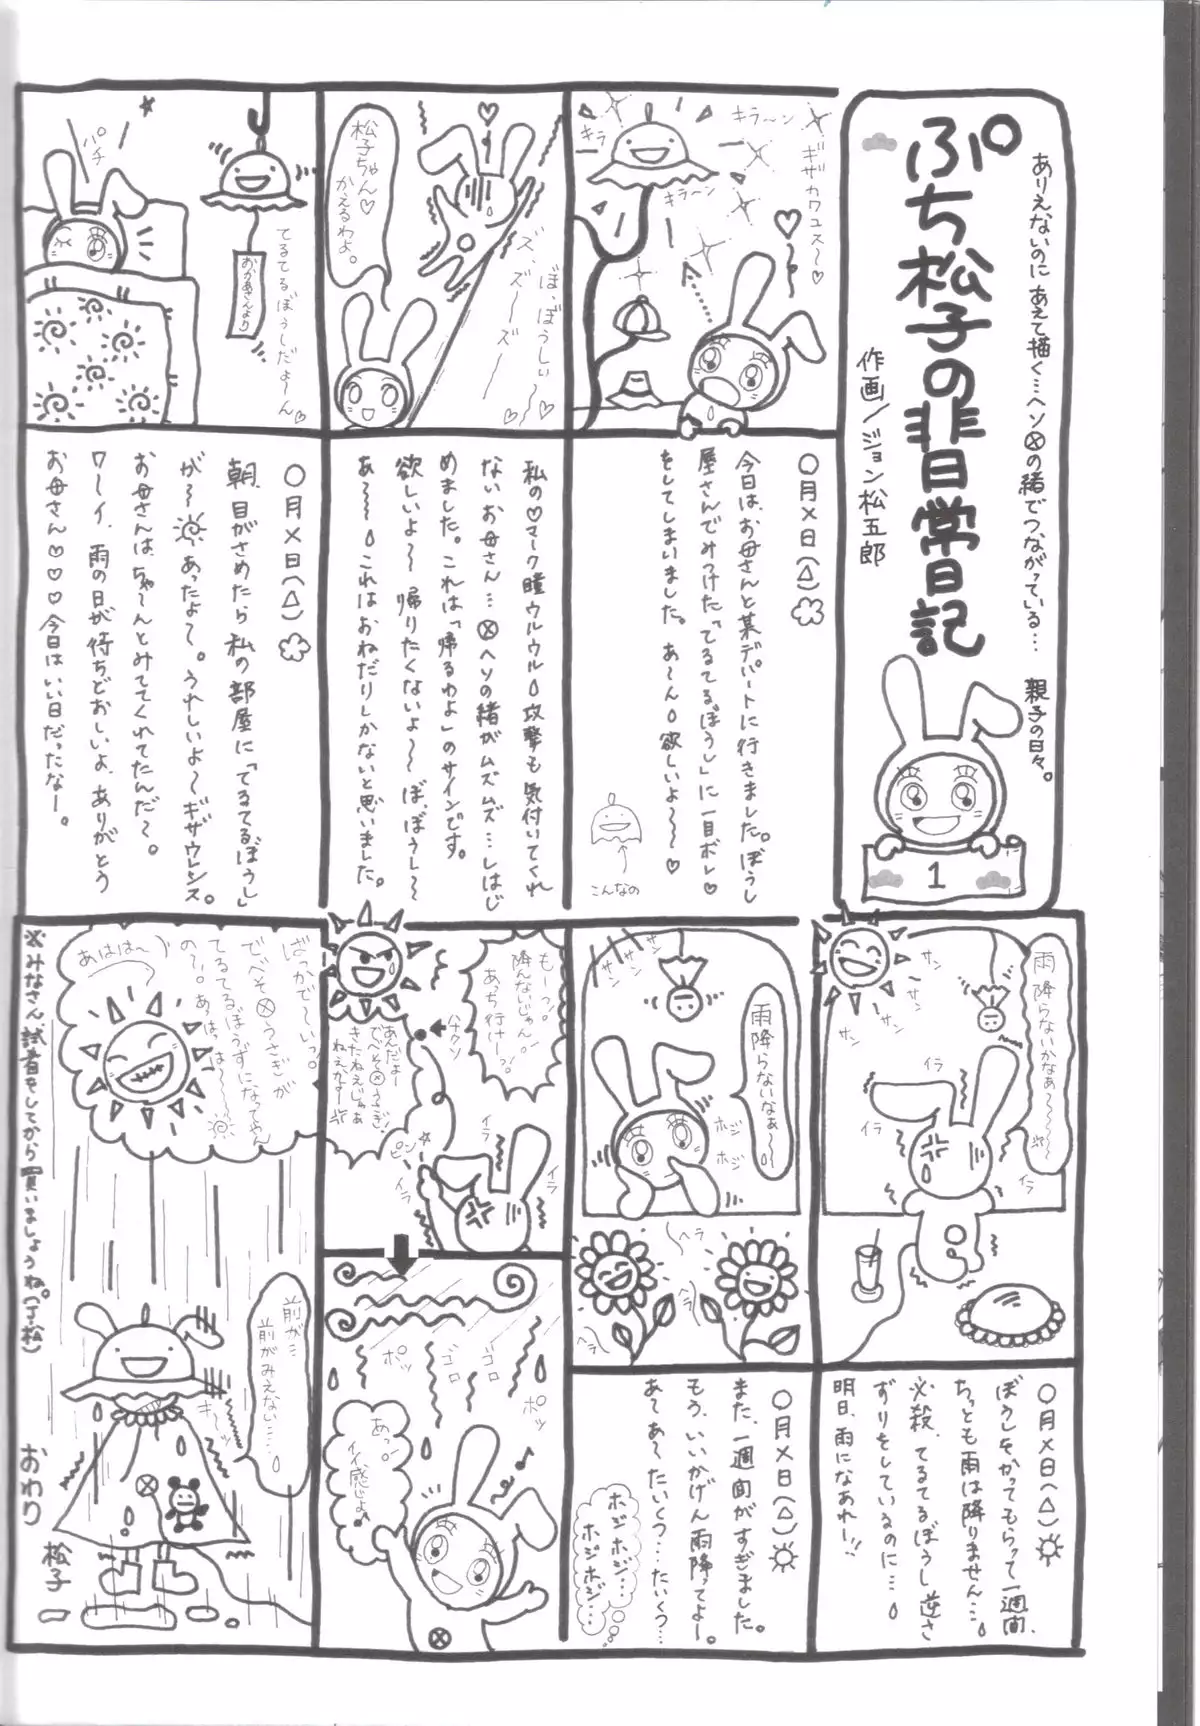 ありえないのに あえて描く…ヘソ⊗の緒でつながっている… 親子の日々。
ぷち松子の非日常日記
作画/ジョン松五郎
1
ギザカワユス～♡
キラ～ン
キラ
キラ～ン
〇月×日(△)
今日は、お母さんと某デパートに行きました。ぼうし
屋さんでみつけた「てるてるぼうし」に一目ボレ♡
をしてしまいました。あ～ん 欲しいよ～～～♡
こんなの
松子ちゃん♡
かえるわよ。
ぼ、ぼうしぃ～
ズ、ズ～～ズ～～
私の♡マーク瞳ウルウル攻撃も気付いてくれ
ないお母さん…⊗ヘソの緒がムズムズ…しはじ
めました。これは「帰るわよ」のサインです。
欲しいよ～～帰りたくないよ～～ぼ、ぼうし～
あ～～これはおねだりしかないと思いました。
パチ
おかあさんより
てるてるぼうしだよ～ん♡
〇月×日(△)
朝、目がさめたら私の部屋に「てるてるぼうし」
が～あったよ～。うれしいよ～ギザウレシス。
お母さんは、ちゃ～んとみててくれてたんだ～。
ワーイ、雨の日が待ちどおしいよ、ありがとう
お母さん♡♡♡今日はいい日だったなー。
雨降らないかなぁ～～～
サン
サン
サン
イラ
イラ
イラ
〇月×日(△)
ぼうしをかってもらって一週間、
ちっとも雨は降りません…
※必殺、てるてるぼうし逆さ
ずりをしているのに…
明日、雨になあれー!!
サン
サン
サン
雨降らないなぁ～
ホジ
ホジ
ヘラ
ヘラ
ヘラ
〇月×日(△)
また、一週間がすぎました。
もう、いいかげん雨降ってよー。
あ～あ～たいくつ…たいくつ…
ホジホジ…
ホジホジ…
もーっ!
降んないじゃん!
あっち行けーっ!
ハナクソ
あんだよー
でべそ⊗うさぎ!
きたねえじゃあ
ねえかー
ピン
イラ
イラ
イラ
ポッ
ゴロ
ゴロ
ポッ
あっ!
イイ感じよ♪
ざっかでーいっ。
でべそ⊗うさぎが
てるてるぼうずになってやん
の～。あっはっは～
あはは～
前が…
前がみえない……
キ～ッ
※みなさん試着をしてから買いましょうね。(子松)
おわり
松子